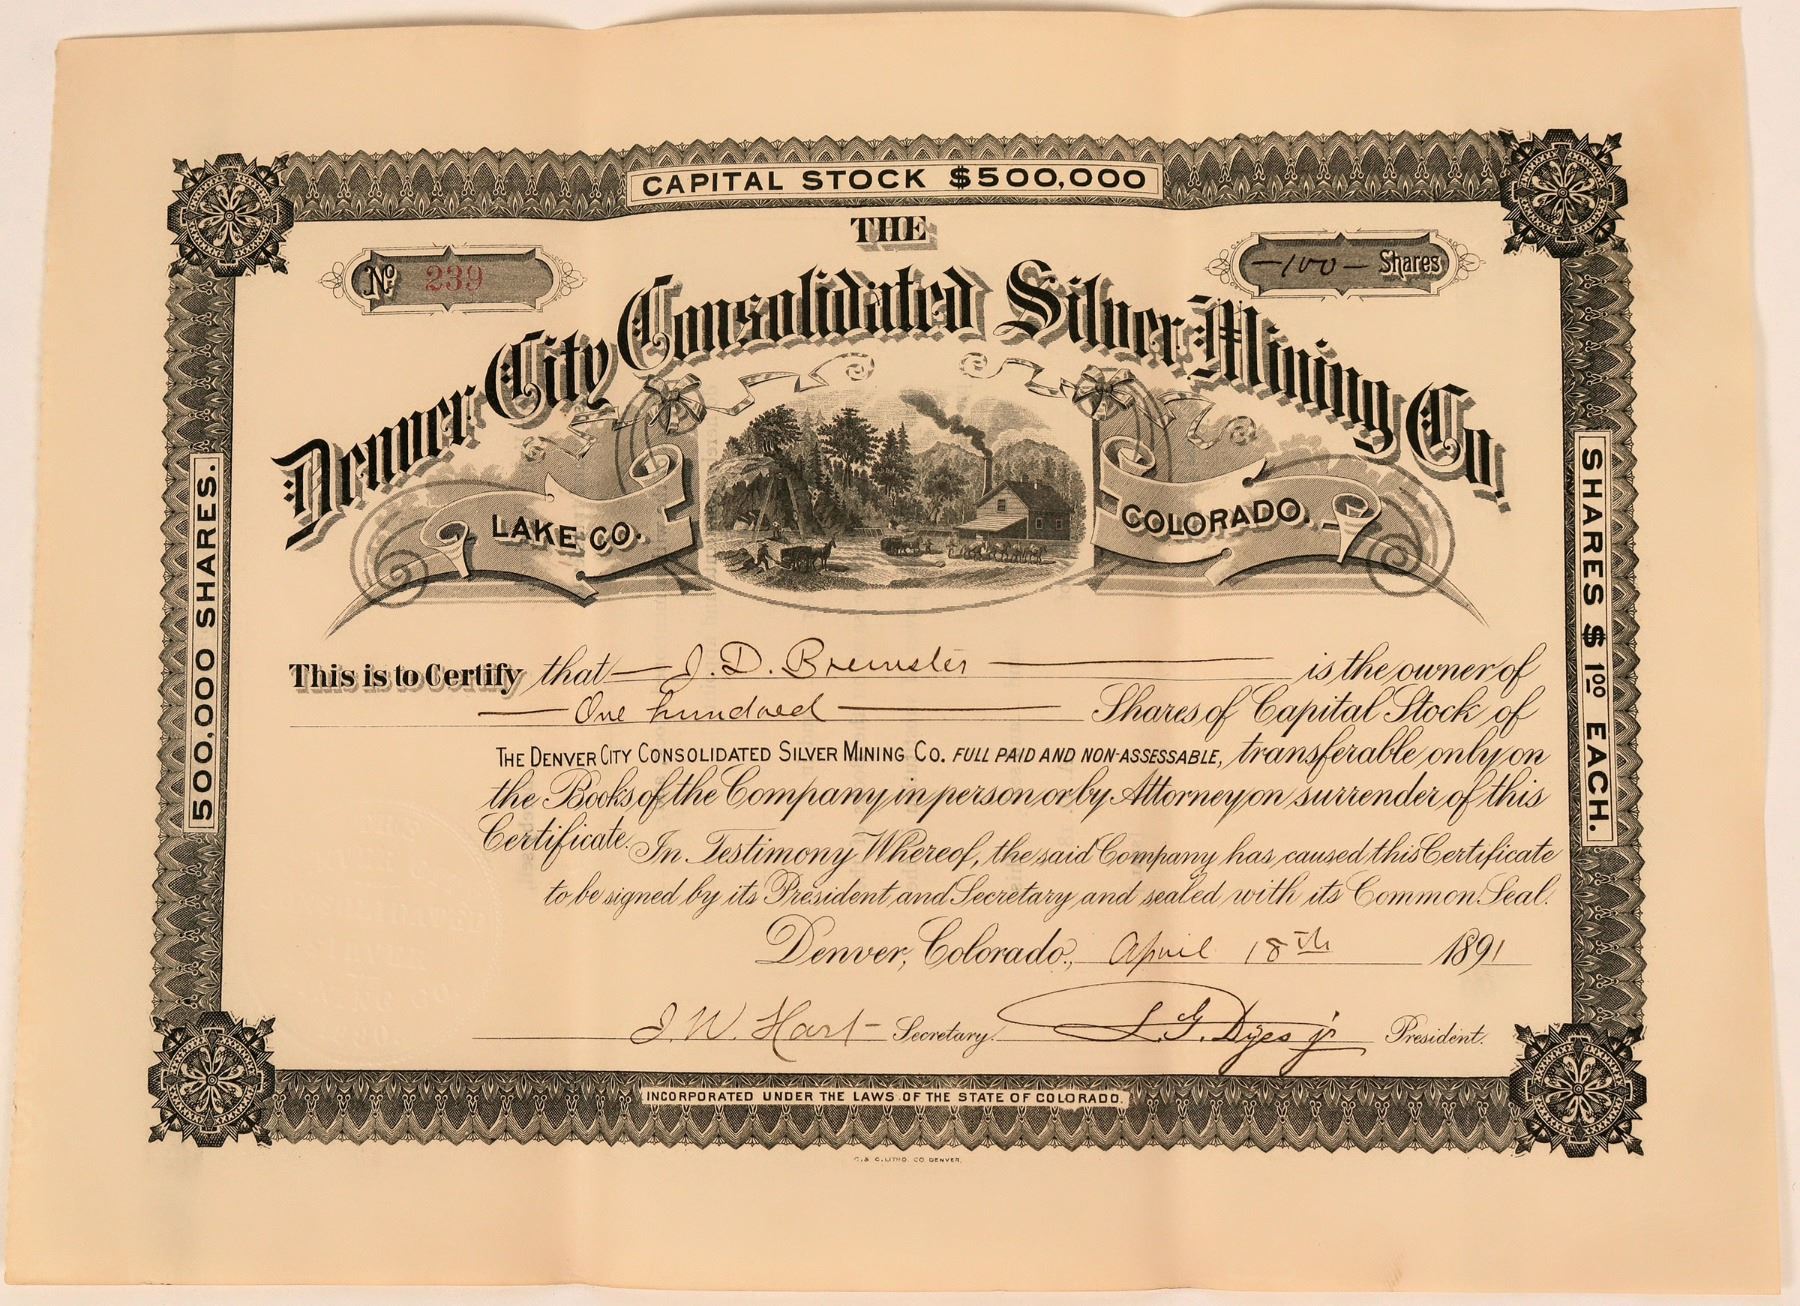 CAPITAL STOCK $500,000
THE
No 239
—100— Shares
Denver City Consolidated Silver Mining Co.
LAKE CO.
COLORADO.
500,000 SHARES.
SHARES $1 00 EACH.
This is to Certify that — J. D. Brewster — is the owner of
— One hundred — Shares of Capital Stock of
THE DENVER CITY CONSOLIDATED SILVER MINING CO. FULL PAID AND NON-ASSESSABLE, transferable only on
the Books of the Company in person or by Attorney on surrender of this
Certificate. In Testimony Whereof, the said Company has caused this Certificate
to be signed by its President and Secretary and sealed with its Common Seal.
Denver, Colorado, April 18th 1891
J. W. Hart Secretary. L. G. Dyes jr President.
INCORPORATED UNDER THE LAWS OF THE STATE OF COLORADO.
LITHO. CO DENVER.